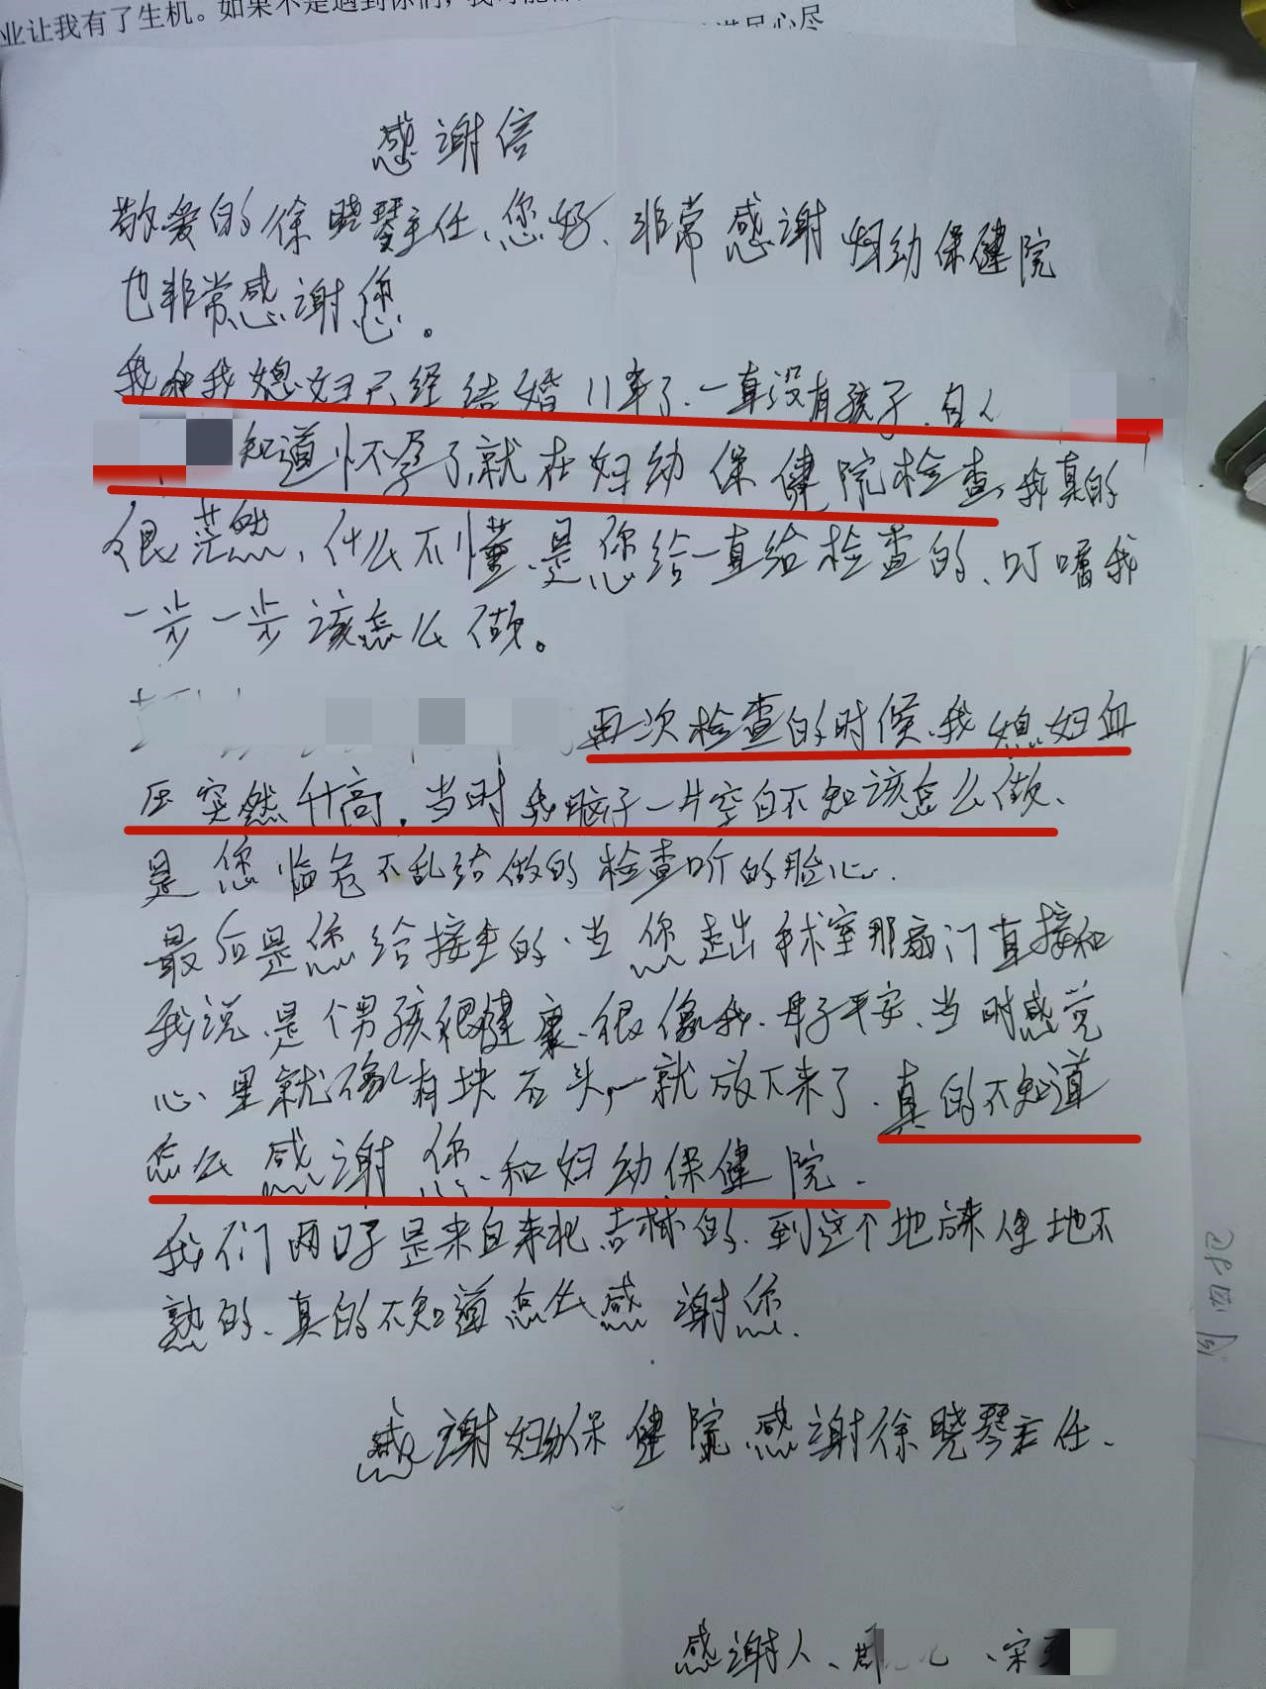 业让我有了生机。如果不是遇到你们，我
满足心尽
感谢信
敬爱的徐晓琴主任、您好、非常感谢妇幼保健院
也非常感谢您。
我和我媳妇已经结婚11年了、一直没有孩子、自从
知道怀孕了,就在妇幼保健院检查、我真的
很茫然、什么不懂、是您给一直给检查的、叮嘱我
一步一步该怎么做。
再次检查的时候、我媳妇血
压突然升高,当时我脑子一片空白不知该怎么做、
是您临危不乱给做的检查听的胎心、
最后是您给接生的、当您走出手术室那扇门直接和
我说、是个男孩很健康、很像我、母子平安、当时感觉
心里就像有块石头,一就放下来了、真的不知道
怎么感谢您、和妇幼保健院、
我们两口子是来自东北吉林的、到这个地旅人生地不
熟的、真的不知道怎么感谢您、
感谢妇幼保健院感谢徐晓琴主任、
感谢人、 、宋